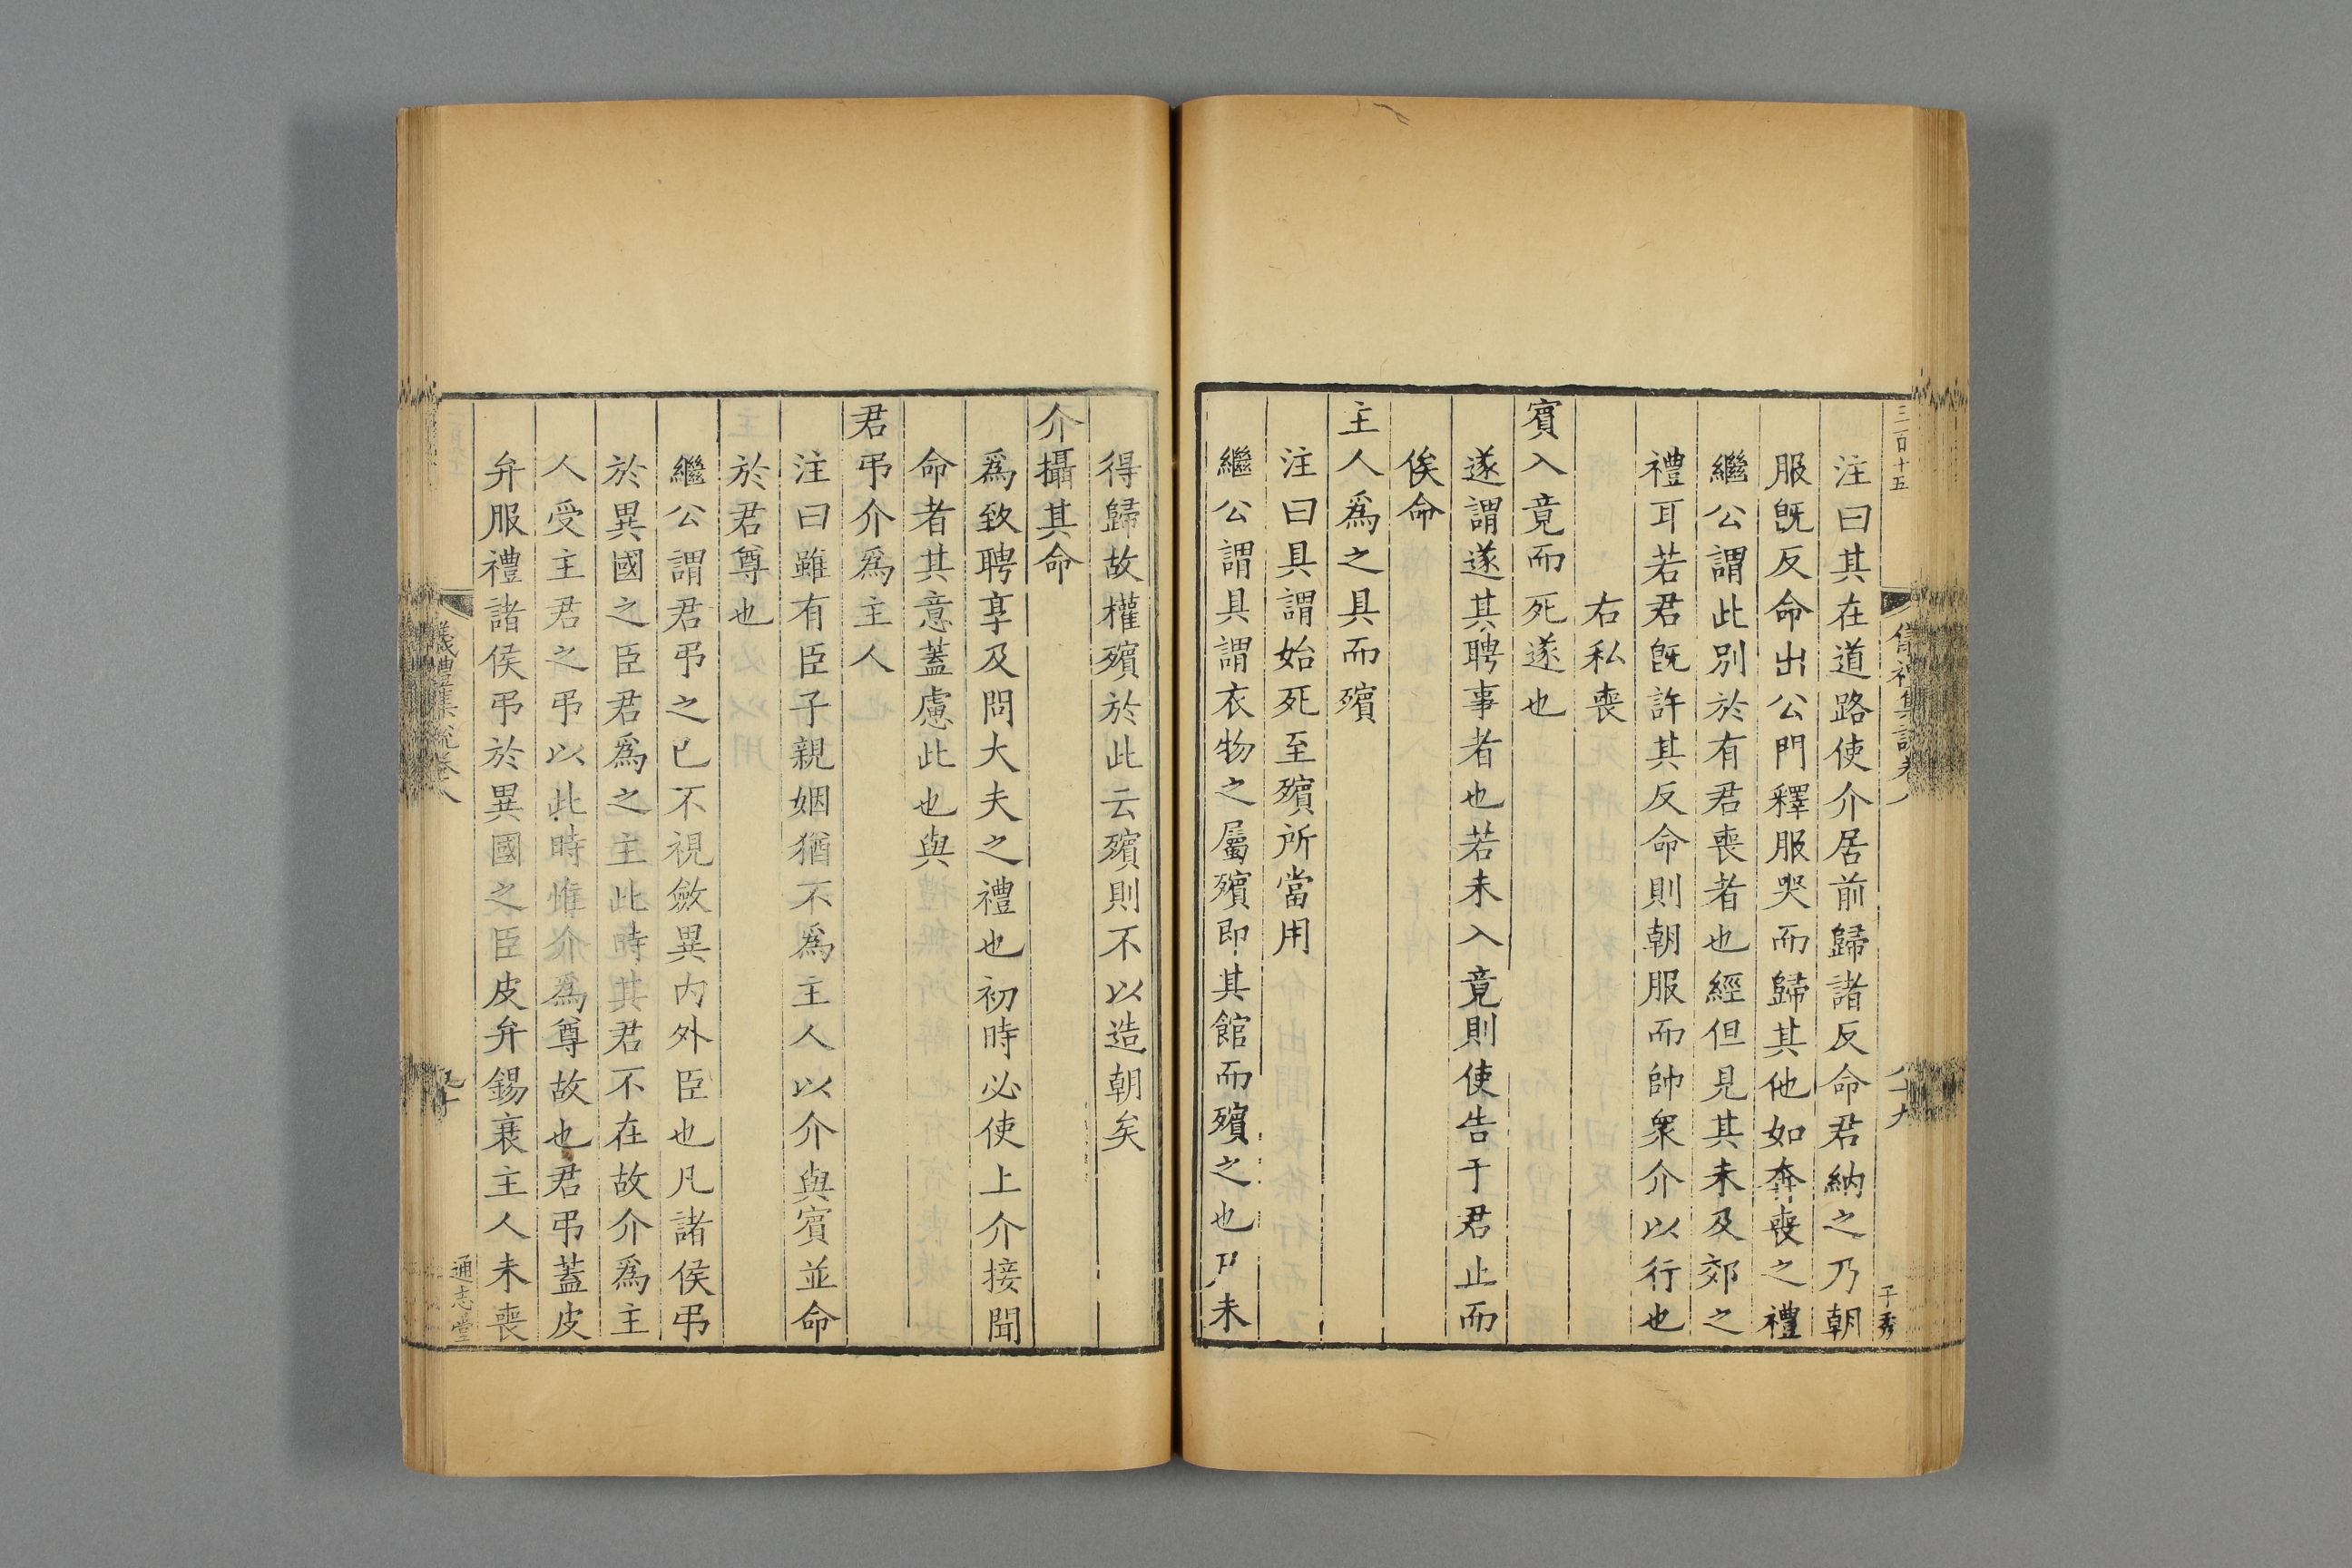 三百十五
儀禮集說卷八
八十九
子秀
注曰其在道路使介居前歸諸反命君納之乃朝
服旣反命出公門釋服哭而歸其他如奔喪之禮
繼公謂此別於有君喪者也經但見其未及郊之
禮耳若君旣許其反命則朝服而帥衆介以行也
右私喪
賓入竟而死遂也
遂謂遂其聘事者也若未入竟則使告于君止而
俟命
主人爲之具而殯
注曰具謂始死至殯所當用
繼公謂具謂衣物之屬殯即其館而殯之也尸未
得歸故權殯於此云殯則不以造朝矣
介攝其命
爲致聘享及問大夫之禮也初時必使上介接聞
命者其意蓋慮此也與
君弔介爲主人
注曰雖有臣子親姻猶不爲主人以介與賓並命
於君尊也
繼公謂君弔之已不視斂異内外臣也凡諸侯弔
於異國之臣君爲之主此時其君不在故介爲主
人受主君之弔以此時惟介爲尊故也君弔蓋皮
弁服禮諸侯弔於異國之臣皮弁錫衰主人未喪
儀禮集說卷八
九十
通志堂